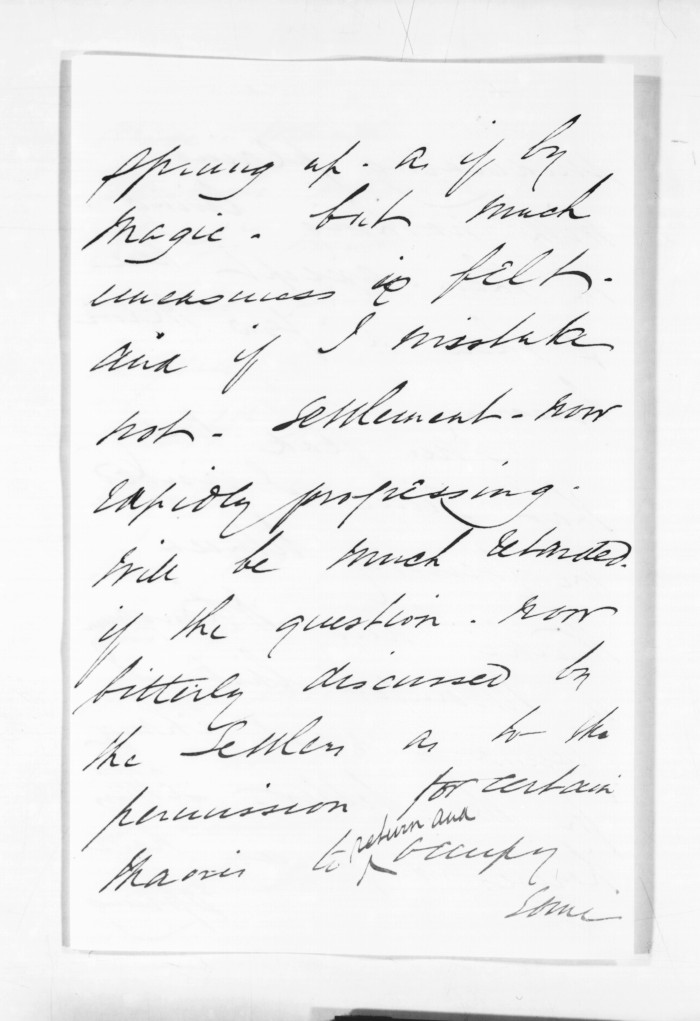 sprung up - as if by
magic - but much
uneasiness is felt -
and if I mistake
not - settlement - now
rapidly progressing -
will be much retarded.
if the question - now
bitterly discussed by
the Settlers as to the
permission for certain
Maoris to return and occupy
some